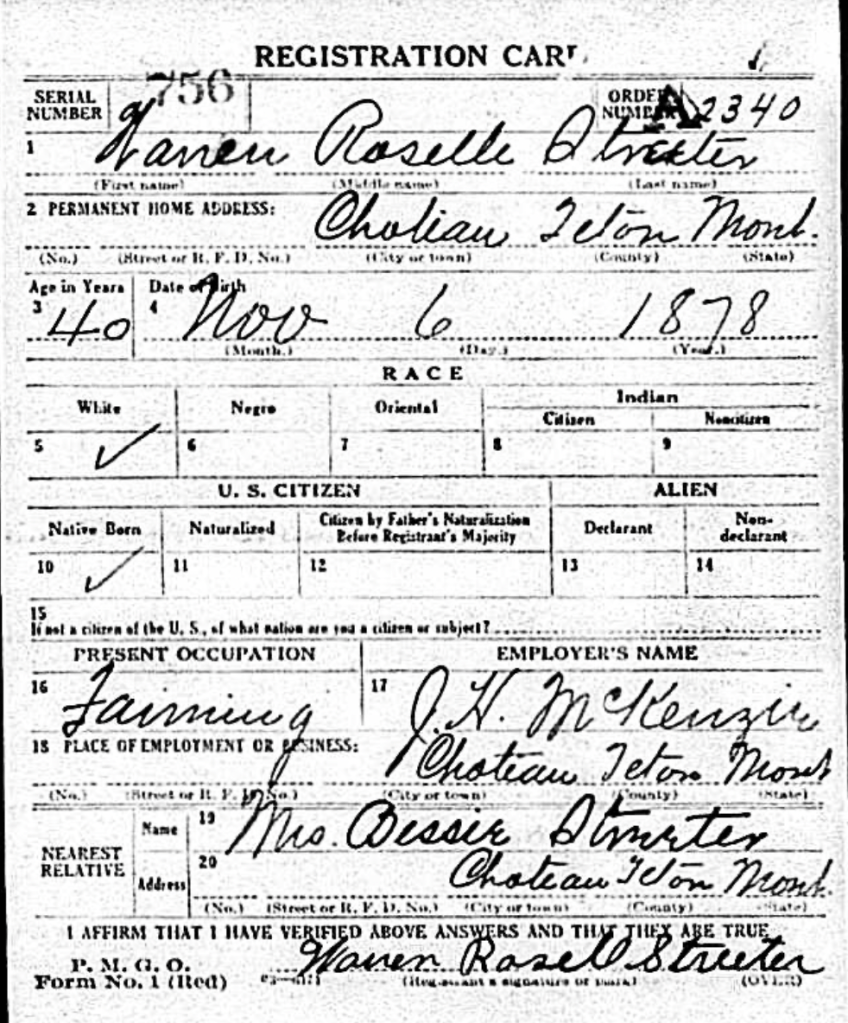 REGISTRATION CARD
SERIAL NUMBER 756 ORDER NUMBER A2340
1 Warren Roselle Streeter
(First name) (Middle name) (Last name)
2 PERMANENT HOME ADDRESS:
Choteau Teton Mont.
(No.) (Street or R. F. D. No.) (City or town) (County) (State)
Age in Years Date of Birth
3 40 4 Nov 6 1878
(Month.) (Day.) (Year.)
RACE
White Negro Oriental Indian
Citizen Noncitizen
5 ✓ 6 7 8 9
U. S. CITIZEN ALIEN
Native Born Naturalized Citizen by Father's Naturalization Before Registrant's Majority Declarant Non-declarant
10 ✓ 11 12 13 14
15
If not a citizen of the U. S., of what nation are you a citizen or subject?
PRESENT OCCUPATION EMPLOYER'S NAME
16 Farming 17 J. H. McKenzie
18 PLACE OF EMPLOYMENT OR BUSINESS:
Choteau Teton Mont
(No.) (Street or R. F. D. No.) (City or town) (County) (State)
NEAREST RELATIVE
Name 19 Mrs. Bessie Streeter
Address 20 Choteau Teton Mont.
(No.) (Street or R. F. D. No.) (City or town) (County) (State)
I AFFIRM THAT I HAVE VERIFIED ABOVE ANSWERS AND THAT THEY ARE TRUE
P. M. G. O.
Form No. 1 (Red) Warren Rosell Streeter
(Registrant's signature or mark) (OVER)